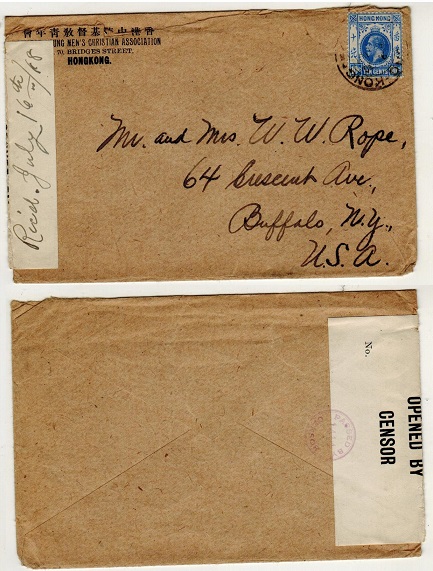 會年青教督基中港香
YOUNG MEN'S CHRISTIAN ASSOCIATION
70, BRIDGES STREET,
HONGKONG.
HONG KONG
TEN CENTS
Rec'd. July 16th
Mr. and Mrs. W. W. Rope,
64 Crescent Ave,
Buffalo, N.Y.,
U.S.A.
No.
OPENED BY
CENSOR
PASSED BY